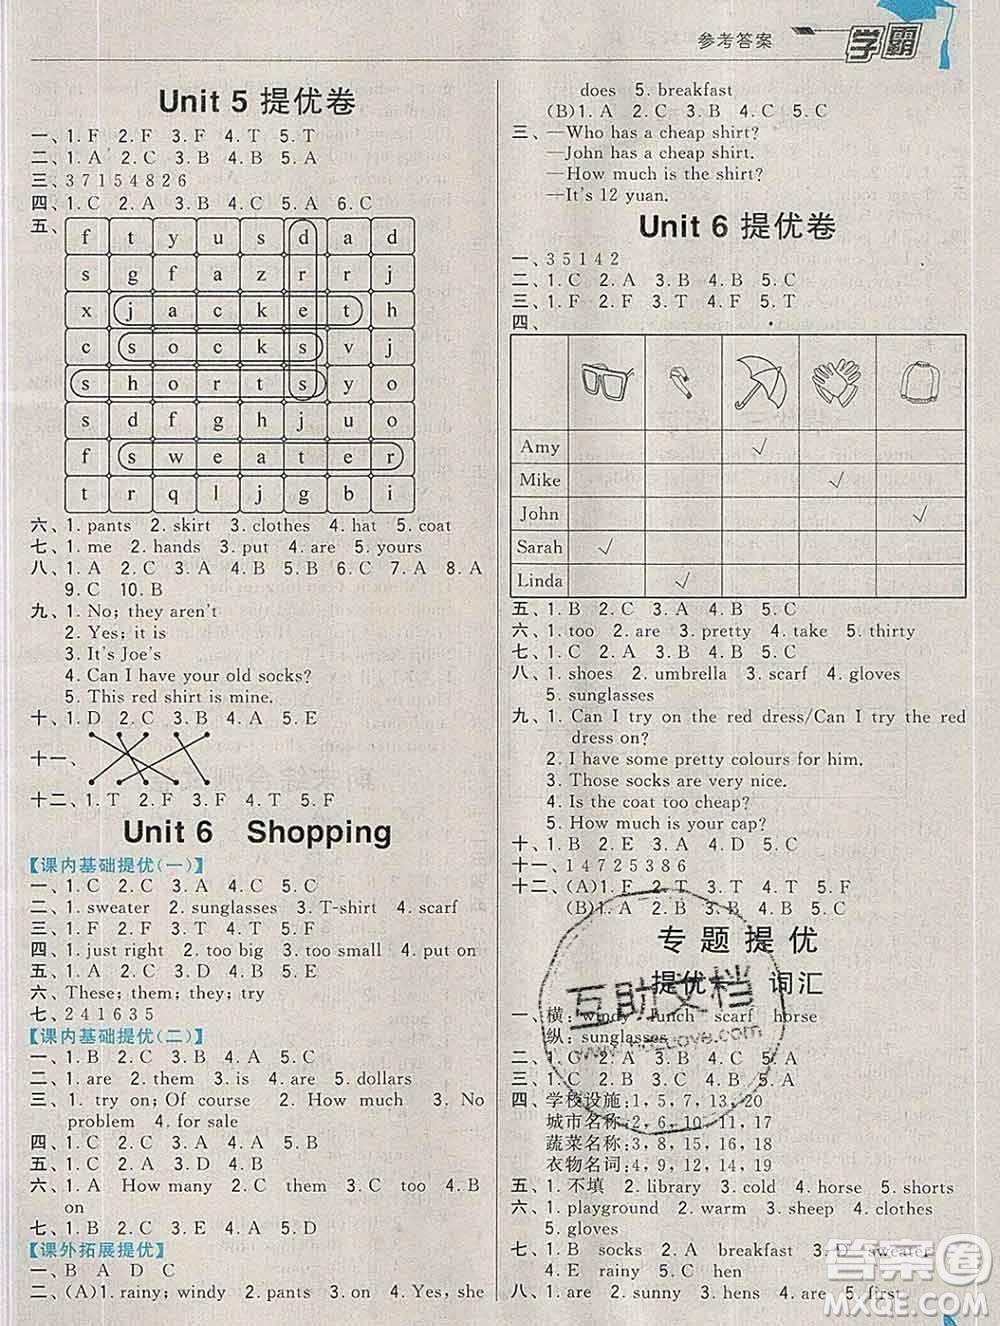 参考答案 学霸
Unit 5 提优卷
一、1. F 2. F 3. F 4. T 5. T
二、1. A 2. C 3. B 4. B 5. A
三、3 7 1 5 4 8 2 6
四、1. C 2. A 3. B 4. C 5. A 6. C
五、
f t y u s d a d
s g f a z r r j
x j a c k e t h
c s o c k s v j
s h o r t s y o
s d f g h j u o
f s w e a t e r
t r q l j g b i
六、1. pants 2. skirt 3. clothes 4. hat 5. coat
七、1. me 2. hands 3. put 4. are 5. yours
八、1. A 2. C 3. A 4. B 5. B 6. C 7. A 8. A
9. C 10. B
九、1. No; they aren't
2. Yes; it is
3. It's Joe's
4. Can I have your old socks?
5. This red shirt is mine.
十、1. D 2. C 3. A 4. B 5. E
十一、
十二、1. T 2. F 3. F 4. T 5. F
Unit 6 Shopping
【课内基础提优(一)】
一、1. C 2. C 3. A 4. C 5. B
二、1. sweater 2. sunglasses 3. T-shirt 4. scarf
三、1. F 2. F 3. T 4. T 5. T
四、1. just right 2. too big 3. too small 4. put on
五、1. A 2. C 3. D 4. B 5. C
六、These; them; they; try
七、2 4 1 6 3 5
【课内基础提优(二)】
一、1. B 2. C 3. B 4. A 5. C
二、1. are 2. them 3. is 4. are 5. dollars
三、1. try on; Of course 2. How much 3. No
problem 4. for sale
四、1. C 2. C 3. A 4. A 5. B
五、1. C 2. C 3. A 4. B
六、1. A How many 2. C them 3. C too 4. B
on
七、1. B 2. C 3. E 4. A 5. D
【课外拓展提优】
一、B A D C
二、(A)1. rainy; windy 2. pants 3. on 4. Yes, she
does 5. breakfast
(B)1. A 2. C 3. B 4. C 5. C
三、—Who has a cheap shirt?
—John has a cheap shirt.
—How much is the shirt?
—It's 12 yuan.
Unit 6 提优卷
一、3 5 1 4 2
二、1. C 2. A 3. B 4. B 5. C
三、1. F 2. F 3. T 4. F 5. T
四、
Amy √
Mike √
John √
Sarah √
Linda √
五、1. B 2. C 3. A 4. B 5. C
六、1. too 2. are 3. pretty 4. take 5. thirty
七、1. C 2. C 3. A 4. B 5. C
八、1. shoes 2. umbrella 3. scarf 4. gloves
5. sunglasses
九、1. Can I try on the red dress/Can I try the red
dress on?
2. I have some pretty colours for him.
3. Those socks are very nice.
4. Is the coat too cheap?
5. How much is your cap?
十、1. B 2. E 3. A 4. D 5. C
十一、1 4 7 2 5 3 8 6
十二、(A)1. F 2. T 3. T 4. T 5. F
(B)1. C 2. B 3. A 4. B 5. C
专题提优
提优一 词汇
一、横: windy lunch scarf horse
纵: sunglasses
二、1. C 2. A 3. B 4. C 5. A
三、1. C 2. B 3. C 4. B 5. A
四、学校设施:1, 5, 7, 13, 20
城市名称:2, 6, 10, 11, 17
蔬菜名称:3, 8, 15, 16, 18
衣物名词:4, 9, 12, 14, 19
五、1. 不填 2. library 3. cold 4. horse 5. shorts
六、1. playground 2. warm 3. sheep 4. clothes
5. gloves
七、1. B socks 2. A breakfast 3. D sweater
4. E rainy 5. C hen
八、1. are 2. sunny 3. hens 4. are 5. first
互助文档
答案圈
MXQE.COM